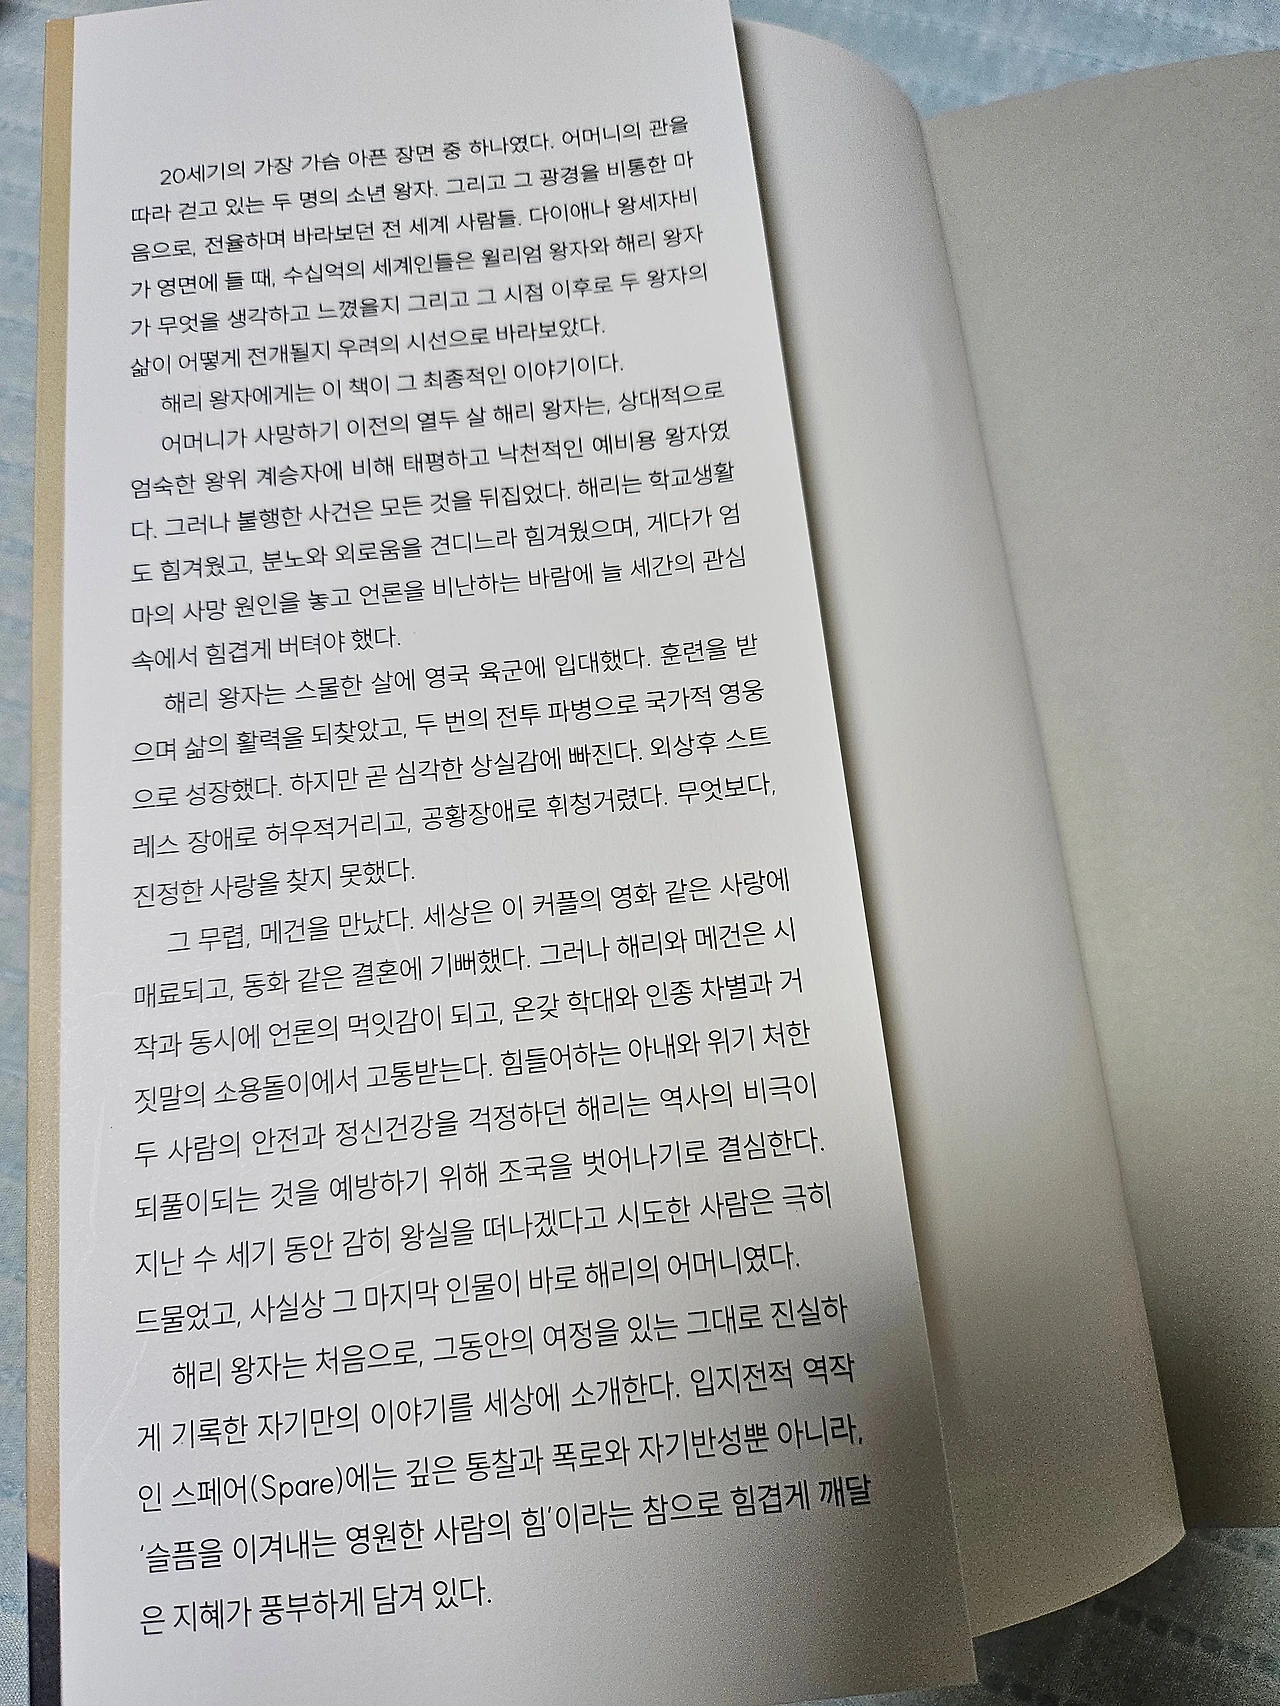 20세기의 가장 가슴 아픈 장면 중 하나였다. 어머니의 관을
따라 걷고 있는 두 명의 소년 왕자. 그리고 그 광경을 비통한 마
음으로, 전율하며 바라보던 전 세계 사람들. 다이애나 왕세자비
가 영면에 들 때, 수십억의 세계인들은 윌리엄 왕자와 해리 왕자
가 무엇을 생각하고 느꼈을지 그리고 그 시점 이후로 두 왕자의
삶이 어떻게 전개될지 우려의 시선으로 바라보았다.
해리 왕자에게는 이 책이 그 최종적인 이야기이다.
어머니가 사망하기 이전의 열두 살 해리 왕자는, 상대적으로
엄숙한 왕위 계승자에 비해 태평하고 낙천적인 예비용 왕자였
다. 그러나 불행한 사건은 모든 것을 뒤집었다. 해리는 학교생활
도 힘겨웠고, 분노와 외로움을 견디느라 힘겨웠으며, 게다가 엄
마의 사망 원인을 놓고 언론을 비난하는 바람에 늘 세간의 관심
속에서 힘겹게 버텨야 했다.
해리 왕자는 스물한 살에 영국 육군에 입대했다. 훈련을 받
으며 삶의 활력을 되찾았고, 두 번의 전투 파병으로 국가적 영웅
으로 성장했다. 하지만 곧 심각한 상실감에 빠진다. 외상후 스트
레스 장애로 허우적거리고, 공황장애로 휘청거렸다. 무엇보다,
진정한 사랑을 찾지 못했다.
그 무렵, 메건을 만났다. 세상은 이 커플의 영화 같은 사랑에
매료되고, 동화 같은 결혼에 기뻐했다. 그러나 해리와 메건은 시
작과 동시에 언론의 먹잇감이 되고, 온갖 학대와 인종 차별과 거
짓말의 소용돌이에서 고통받는다. 힘들어하는 아내와 위기 처한
두 사람의 안전과 정신건강을 걱정하던 해리는 역사의 비극이
되풀이되는 것을 예방하기 위해 조국을 벗어나기로 결심한다.
지난 수 세기 동안 감히 왕실을 떠나겠다고 시도한 사람은 극히
드물었고, 사실상 그 마지막 인물이 바로 해리의 어머니였다.
해리 왕자는 처음으로, 그동안의 여정을 있는 그대로 진실하
게 기록한 자기만의 이야기를 세상에 소개한다. 입지전적 역작
인 스페어(Spare)에는 깊은 통찰과 폭로와 자기반성뿐 아니라,
‘슬픔을 이겨내는 영원한 사람의 힘’이라는 참으로 힘겹게 깨달
은 지혜가 풍부하게 담겨 있다.